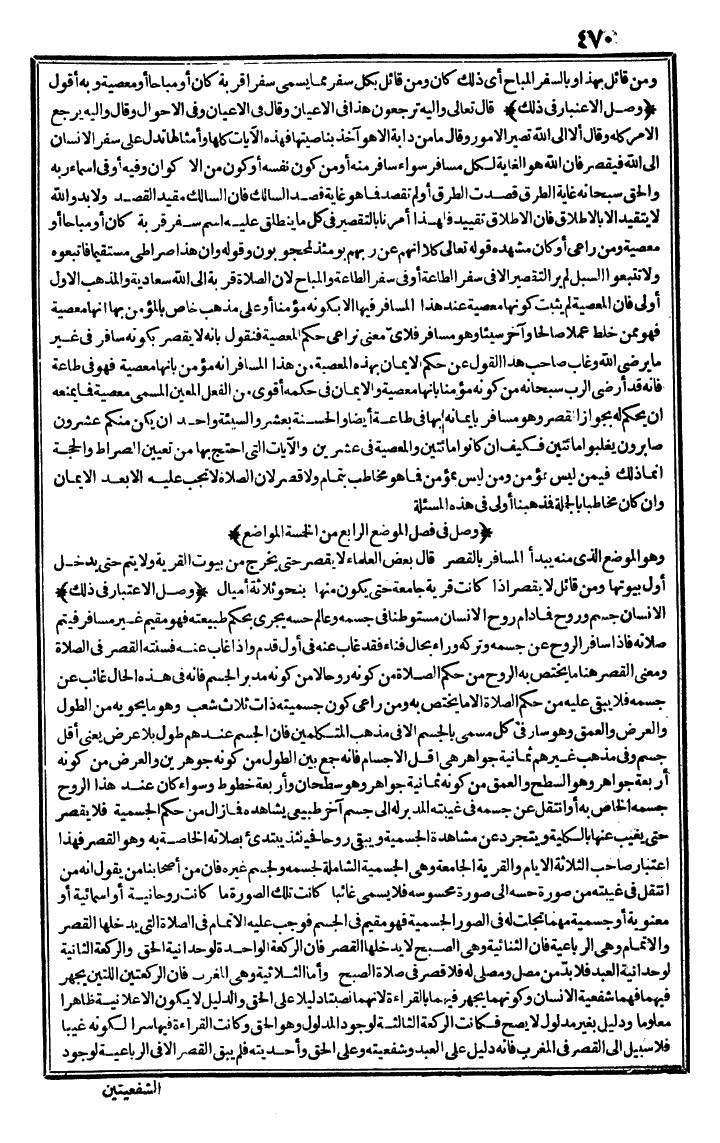 ٤٧٠
ومن قائل بهذا وبالسفر المباح أى ذلك كان ومن قائل بكل سفر مما يسمى سفرا قربة كان أو مباحا أو معصية وبه أقول
﴿وصل الاعتبار فى ذلك﴾ قال تعالى واليه ترجعون هذا فى الاعيان وقال فى الاعيان وفى الاحوال وقال واليه يرجع
الامر كله وقال ألا الى الله تصير الامور وقال ما من دابة الا هو آخذ بناصيتها فهذه الآيات كلها وأمثالها تدل على سفر الانسان
الى الله فيقصر فان الله هو الغاية لكل مسافر سواء سافر منه أو من كون نفسه أو كون من الا كوان وفيه أو فى اسماء ربه
والحق سبحانه غاية الطرق قصدت الطرق أولم تقصد فما هو غاية قصد السالك فان السالك مقيد القصد ولا بد والله
لا يتقيد الا بالاطلاق فان الاطلاق تقييد فلهذا أمرنا بالتقصير فى كل ما ينطلق عليه اسم سفر قربة كان أو مباحا أو
معصية ومن راعى أو كان مشهده قوله تعالى كلا انهم عن ربهم يومئذ لمحجوبون وقوله وان هذا صراطى مستقيما فاتبعوه
ولا تتبعوا السبل لم ير التقصير الا فى سفر الطاعة أو فى سفر الطاعة والمباح لان الصلاة قربة الى الله سعادية والمذهب الاول
أولى فان المعصية لم يثبت كونها معصية عند هذا المسافر فيها الا بكونه مؤمنا أو على مذهب خاص بالمؤمن بها انها معصية
فهو ممن خلط عملا صالحا وآخر سيئا وهو مسافر فلاىّ معنى نراعى حكم المعصية فنقول بانه لا يقصر بكونه سافر فى غير
ما يرضى الله وغاب صاحب هذا القول عن حكم الايمان بهذه المعصية من هذا المسافر انه مؤمن بانها معصية فهو فى طاعة
فانه قد أرضى الرب سبحانه من كونه مؤمنا بانها معصية والايمان فى حكمه أقوى من الفعل المعين المسمى معصية فما يمنعه
ان يحكم له بجواز القصر وهو مسافر بايمانه بها فى طاعة أيضا والحسنة بعشر والسيئة واحد ان يكن منكم عشرون
صابرون يغلبوا مائتين فكيف ان كانوا مائتين والمعصية فى عشرين والآيات التى احتج بها من تعيين الصراط والحجة
انما ذلك فيمن ليس بمؤمن ومن ليس بمؤمن فما هو مخاطب بتمام ولا قصر لان الصلاة لا تجب عليه الا بعد الايمان
وان كان مخاطبا بالجملة فذهبنا أولى فى هذه المسئلة
﴿وصل فى فصل الموضع الرابع من الخمسة المواضع﴾
وهو الموضع الذى منه يبدأ المسافر بالقصر قال بعض العلماء لا يقصر حتى يخرج من بيوت القرية ولا يتم حتى يدخل
أول بيوتها ومن قائل لا يقصر اذا كانت قرية جامعة حتى يكون منها بنحو ثلاثة أميال ﴿وصل الاعتبار فى ذلك﴾
الانسان جسم وروح فما دام روح الانسان مستوطنا فى جسمه وعالم حسه يجرى بحكم طبيعته فهو مقيم غير مسافر فيتم
صلاته فاذا سافر الروح عن جسمه وتركه وراءه بحال فناء فقد غاب عنه فى أول قدم واذا غاب عنه فسنته القصر فى الصلاة
ومعنى القصر هنا ما يختص به الروح من حكم الصلاة من كونه روحا لا من كونه مدبر الجسم فانه فى هذه الحال غائب عن
جسمه فلا يبقى عليه من حكم الصلاة الا ما يختص به ومن راعى كون جسميته ذات ثلاث شعب وهو ما يحويه من الطول
والعرض والعمق وهو سار فى كل مسمى بالجسم الا فى مذهب المتكلمين فان الجسم عندهم طول بلا عرض يعنى أقل
جسم وفى مذهب غيرهم ثمانية جواهر هى اقل الاجسام فانه جمع بين الطول من كونه جوهرين والعرض من كونه
أربعة جواهر وهو السطح والعمق من كونه ثمانية جواهر وهو سطحان وأربعة خطوط وسواء كان عند هذا الروح
جسمه الخاص به أو انتقل عن جسمه فى غيبته المدبر له الى جسم آخر طبيعى يشاهده فما زال من حكم الجسمية فلا يقصر
حتى يغيب عنها بالكلية ويتجرد عن مشاهدة الجسمية ويبقى روحا فينئذ يبتدئ بصلاته الخاصة به وهو القصر فهذا
اعتبار صاحب الثلاثة الايام والقرية الجامعة وهى الجسمية الشاملة لجسمه ولجسم غيره فان من أصحابنا من يقول انه من
انتقل فى غيبته من صورة حسه الى صورة محسوسه فلا يسمى غائبا كانت تلك الصورة ما كانت روحانية أو اسمائية أو
معنوية أو جسمية مهما تجلت له فى الصور الجسمية فهو مقيم فى الجسم فوجب عليه الاتمام فى الصلاة التى يدخلها القصر
والاتمام وهى الرباعية فان الثنائية وهى الصبح لا يدخلها القصر فان الركعة الواحدة لوحدانية الحق والركعة الثانية
لوحدانية العبد فلا بدّ من مصل ومصلى له فلا قصر فى صلاة الصبح وأما الثلاثية وهى المغرب فان الركعتين اللتين يجهر
فيهما فهما شفعية الانسان وكونهما يجهر فيهما بالقراءة لانهما نصبتا دليلا على الحق والدليل لا يكون الا علانية ظاهرا
معلوما ودليل بغير مدلول لا يصح فكانت الركعة الثالثة لوجود المدلول وهو الحق وكانت القراءة فيها سرا لكونه غيبا
فلا سبيل الى القصر فى المغرب فانه دليل على العبد وشفعيته وعلى الحق وأحديته فلم يبق القصر الا فى الرباعية لوجود
الشفعيتين